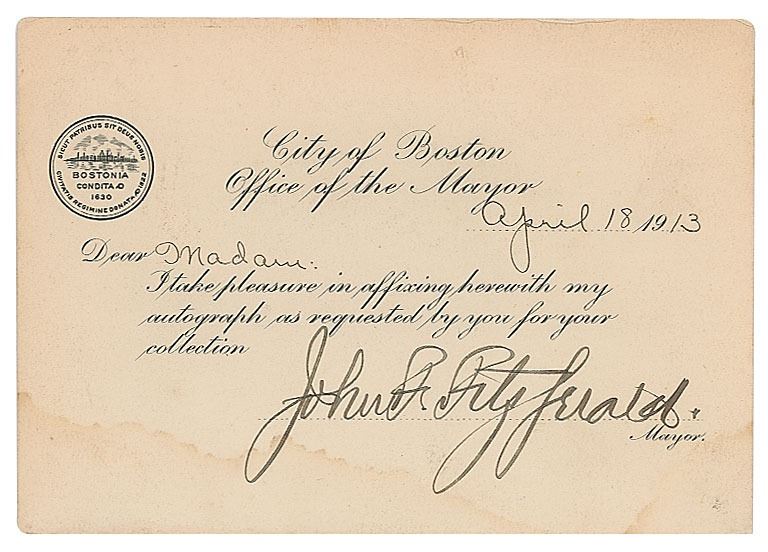 SICUT PATRIBUS SIT DEUS NOBIS
BOSTONIA
CONDITA AD
1630
CIVITATIS REGIMINE DONATA AD 1822
City of Boston
Office of the Mayor
April 18 1913
Dear Madam.
I take pleasure in affixing herewith my
autograph as requested by you for your
collection
John F. Fitzgerald.
Mayor.